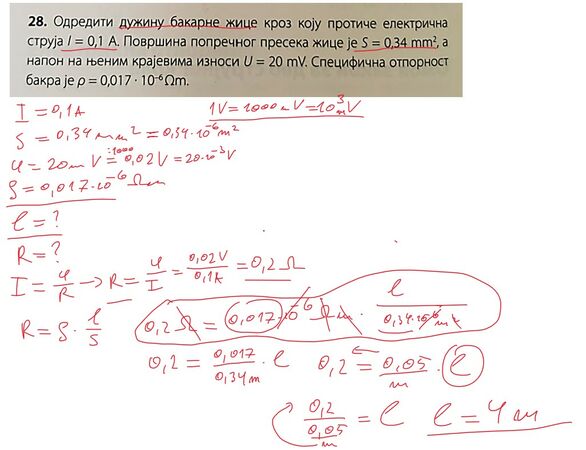 28. Одредити дужину бакарне жице кроз коју протиче електрична
струја I = 0,1 A. Површина попречног пресека жице је S = 0,34 mm², а
напон на њеним крајевима износи U = 20 mV. Специфична отпорност
бакра је ρ = 0,017 · 10⁻⁶ Ωm.
I = 0,1A
1V = 1000mV = 10³ mV
S = 0,34 mm² = 0,34·10⁻⁶ m²
:1000
U = 20mV = 0,02V = 20·10⁻³V
ρ = 0,017·10⁻⁶ Ωm
l = ?
R = ?
I = U/R → R = U/I = 0,02V/0,1A = 0,2 Ω
R = ρ · l/S
0,2 Ω = 0,017·10⁻⁶ Ωm · l/0,34·10⁻⁶ m²
0,2 = 0,017/0,34m · l
0,2 = 0,05/m · l
0,2/0,05/m = l
l = 4m